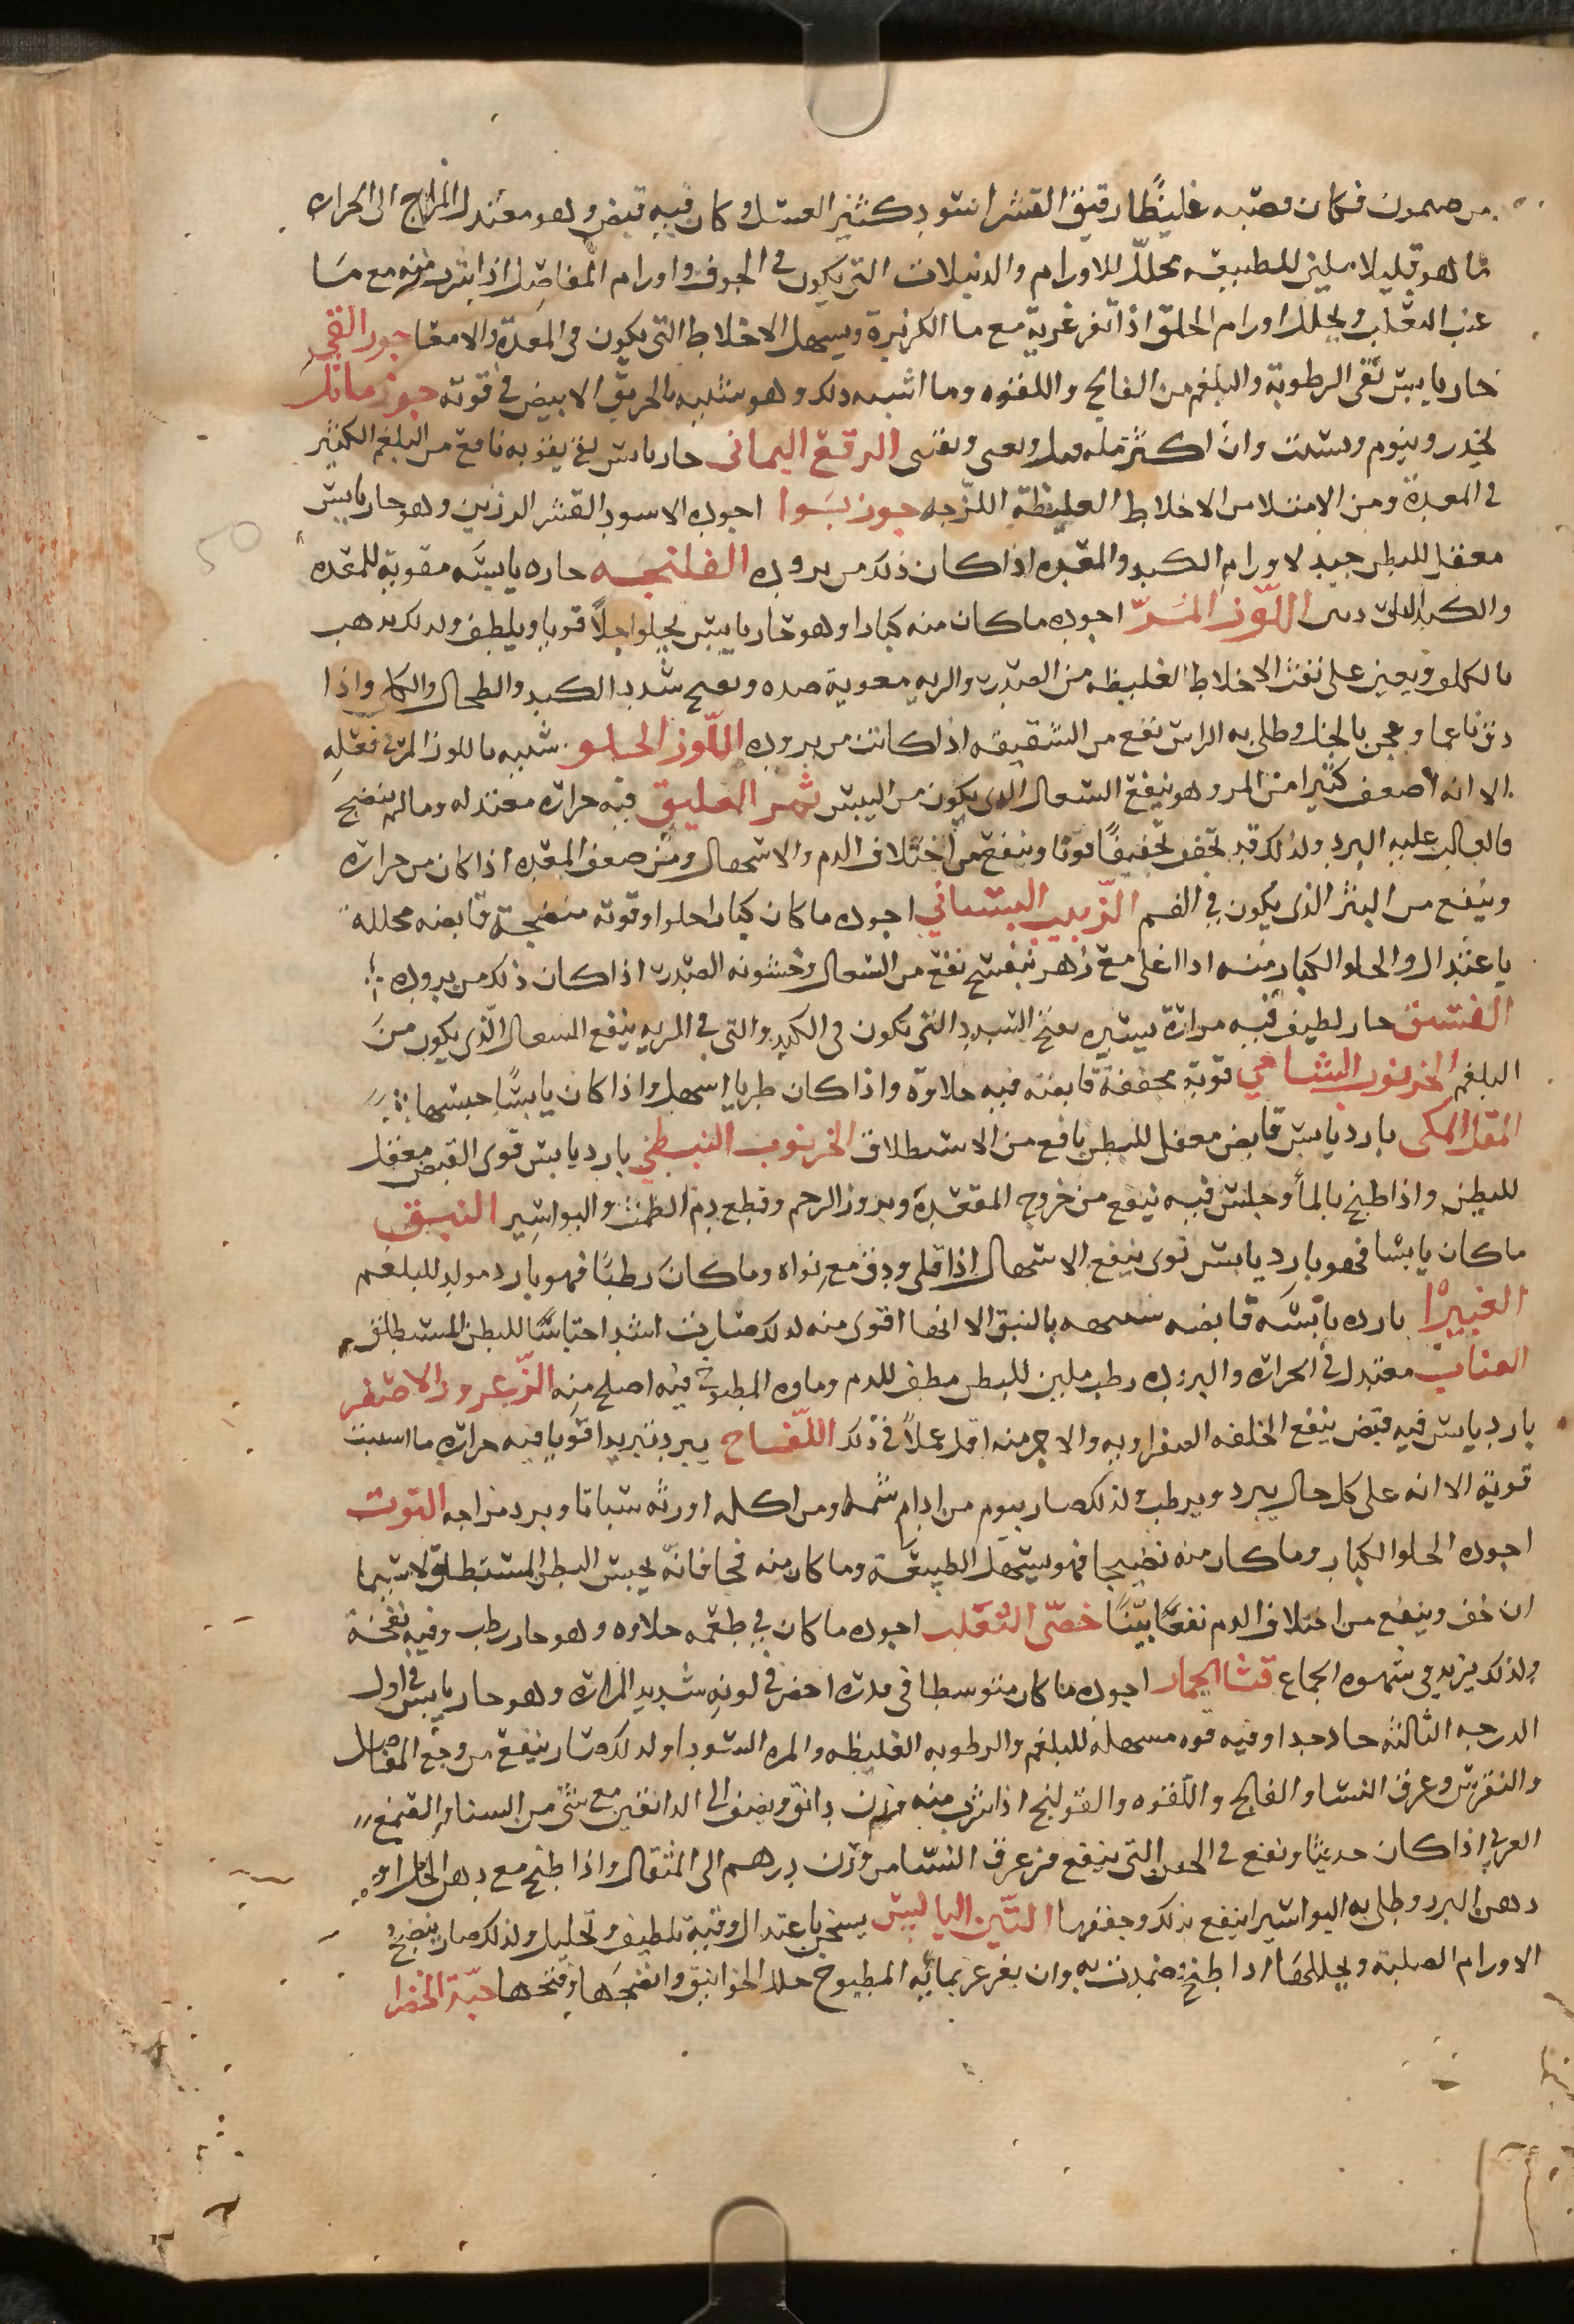 من صمون فكان قصبه غليظًا رقيق القشر اسود كثير العسل وكان فيه قبض وهو معتدل المزاج الى الحراره
ما هو قليلا ملين للطبيعه محلل للاورام والدبيلات التي يكون في الجوف واورام المفاصل اذا شرب منه مع ما
عنب الثعلب ويحلل اورام الحلق اذا تغرغر به مع ما الكزبرة ويسهل الاخلاط التي يكون في المعدة والامعا جوز القي
حار يابس نقى الرطوبة والبلغم من الفالج واللقوه وما اشبه ذلك وهو شبيه بالخربق الابيض في قوته جوز ماثل
يخدر وينوم ويسبت وان اكثر منه قتل الرقع اليماني حار يابس نافع من البلغم الكثير
في المعدة ومن الامتلا من الاخلاط الغليظة اللزجه جوز بسوا اجوده الاسود القشر الرزين وهو حار يابس
معقل للبطن جيد لاورام الكبد والمعده اذا كان ذلك من بروده الفلنجه حاره يابسه مقوية للمعده
والكبد اللوز المر اجوده ما كان منه كبارا وهو حار يابس يجلوا جلًا قويا ويلطف ولذلك يذهب
بالكلف ويعين على نفث الاخلاط الغليظه من الصدر والريه معونة ويفتح سدد الكبد والطحال والكلى واذا
دق ناعما وعجن بالخل وطلى به الراس نفع من الشقيقه اذا كانت من بروده اللوز الحلو شبيه باللوز المر في فعله
الا انه اضعف كثيرا من المر وهو ينفع السعال الذى يكون من اليبس ثمر العليق فيه حراره معتدله وما لم ينضج
فالغالب عليه البرد ولذلك قد يجفف تجفيفًا قويا وينفع من اختلاف الدم والاسهال ومن ضعف المعده اذا كان من حراره
وينفع من البثر الذى يكون في الفم الزبيب البستاني اجوده ما كان كبارا حلوا وقوته منضجة قابضه محللة
باعتدال والحلو الكبار منه اذا اغلى مع زهر بنفسج نفع من السعال وخشونه الصدر اذا كان ذلك من بروده
الفستق حار لطيف فيه مرارة يسيره يفتح السدد التي تكون في الكبد والتي في الريه ينفع السعال الذي يكون من
البلغم الخرنوب الشامي قوته مجففة قابضه فيه حلاوة واذا كان طريا اسهل واذا كان يابسًا حبسها
المقل المكي بارد يابس قابض معقل للبطن نافع من الاستطلاق الخرنوب النبطي بارد يابس قوى القبض معقل
للبطن واذا طبخ بالمأ وجلس فيه نفع من خروج المقعدة وبروز الرحم وقطع دم الطمث والبواسير النبق
ما كان يابسا فهو بارد يابس قوى ينفع الاسهال اذا قلى ودق مع نواه وما كان رطبًا فهو بارد مولد للبلغم
الغبيرا بارده يابسه قابضه شبيهه بالنبق الا انها اقوى منه لذلك صارت اشد احتباسًا للبطن المستطلق
العناب معتدل في الحراره والبروده رطب ملين للبطن مطفى للدم وماوه المطبوخ فيه اصلح منه الزعرور الاصفر
بارد يابس فيه قبض ينفع الخلفه الصفراويه والاحمر منه اقل عملًا في ذلك اللفاح يبرد تبريدا قويا فيه حراره ما ليست
قوية الا انه على كل حال يبرد ويرطب ولذلك صار ينوم من ادام شمه ومن اكله اورثه سباتا وبرد مزاجه التوت
اجوده الحلو الكبار وما كان منه نضيجا فهو يسهل الطبيعة وما كان منه فجا فانه يحبس البطن المستطلق لا سيما
ان جفف وينفع من اختلاف الدم نفعًا بيّنًا خصى الثعلب اجوده ما كان في طعمه حلاوه وهو حار رطب وفيه نفخة
ولذلك يزيد في شهوه الجماع قثا الحمار اجوده ما كان متوسطا في قدره اخضر في لونه شديد المراره وهو حار يابس في اول
الدرجه الثالثه حاد جدا وفيه قوه مسهلة للبلغم والرطوبه الغليظه والمره السودا ولذلك صار ينفع من وجع المفاصل
والنقرس وعرق النسا والفالج واللقوه والقولنج اذا شرب منه وزن دانق ونصف الى الدانقين مع شى من السنا والصمغ
العربي اذا كان حديثا ونفع في الحقن التي ينفع من عرق النسا من وزن درهم الى المثقال واذا طبخ مع دهن الخل او
دهن البرد وطلى به البواسير انتفع بذلك وجففها التين اليابس يسخن باعتدال وفيه تلطيف وتحليل ولذلك صار ينضج
الاورام الصلبة ويحللها اذا طبخ وضمدت به وان يغرغر بمائه المطبوخ حلل الخوانيق وانضجها وفتحها حبة الخضرا